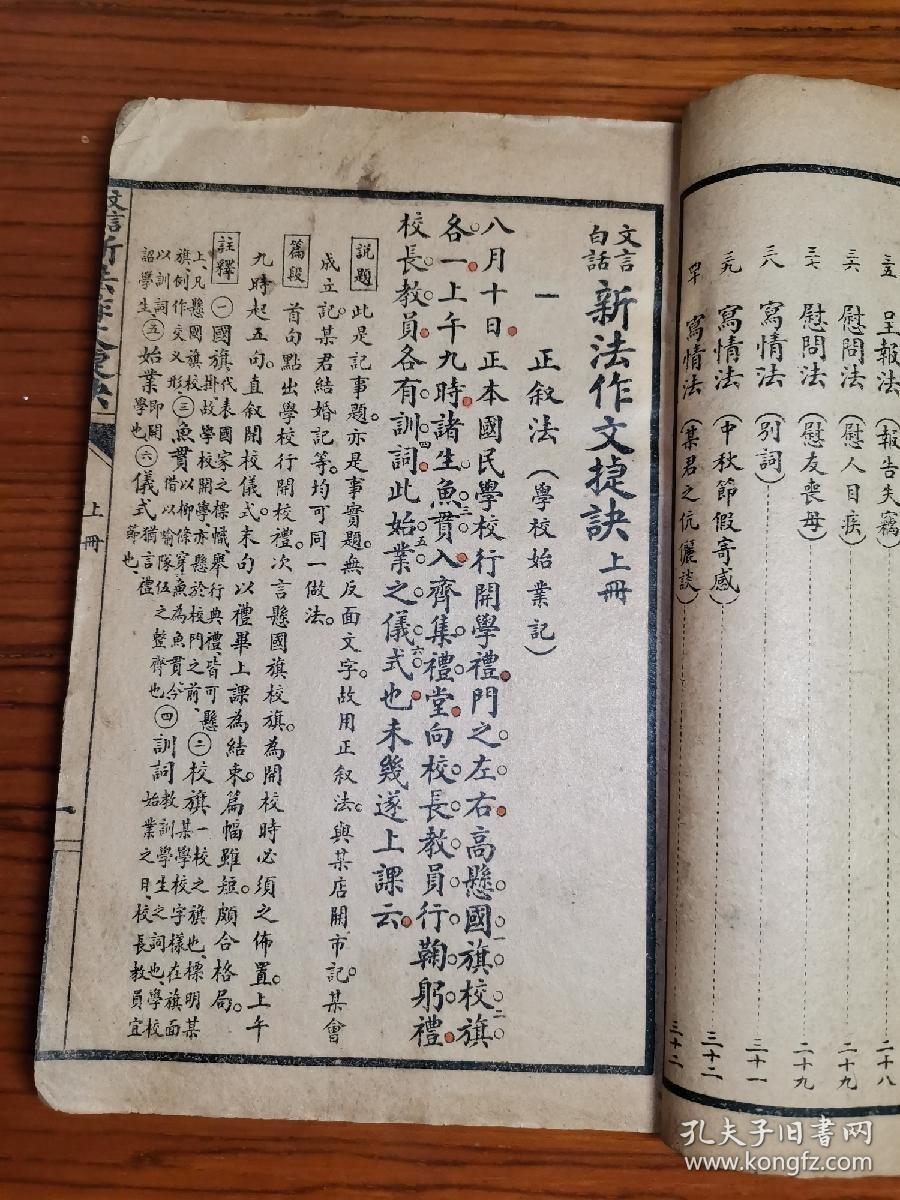 三五 呈報法（報告失竊） 二十八
三六 慰問法（慰人目疾） 二十九
三七 慰問法（慰友喪母） 二十九
三八 寫情法（別詞） 三十一
三九 寫情法（中秋節假寄感） 三十二
四十 寫情法（某君之伉儷談） 三十二
文言白話 新法作文捷訣 上冊
一 正叙法（學校始業記）
八月十日。正本國民學校行開學禮。門之左右。高懸國旗一校旗二
各一。上午九時。諸生魚貫三入。齊集禮堂。向校長教員行鞠躬禮。
校長教員各有訓詞四。此始業五之儀式六也。未幾遂上課云。
說題 此是記事題。亦是事實題。無反面文字。故用正叙法。與某店開市記。某會
成立記。某君結婚記等。均可同一做法。
篇段 首句點出學校行開校禮。次言懸國旗校旗。為開校時必須之佈置。上午
九時起五句。直叙開校儀式。末句以禮畢上課為結束。篇幅雖短。頗合格局。
註釋 ㊀國旗 代表國家之標幟、舉行典禮、皆可懸上、凡懸國旗校旗掛、故學校開學、亦懸於校門之前、㊁校旗 一校之旗也、標明某某學校字樣在旗面
旗、例作交叉形、㊂魚貫 以柳條穿魚為魚貫、今借以喻隊伍之整齊也、㊃訓詞 教訓學生之詞也、學校始業之日、校長教員宜
以訓詞詔學生、㊄始業 即開學也、㊅儀式 猶言禮節也、
文言新法作文捷訣 上冊 一
孔夫子旧书网
www.kongfz.com